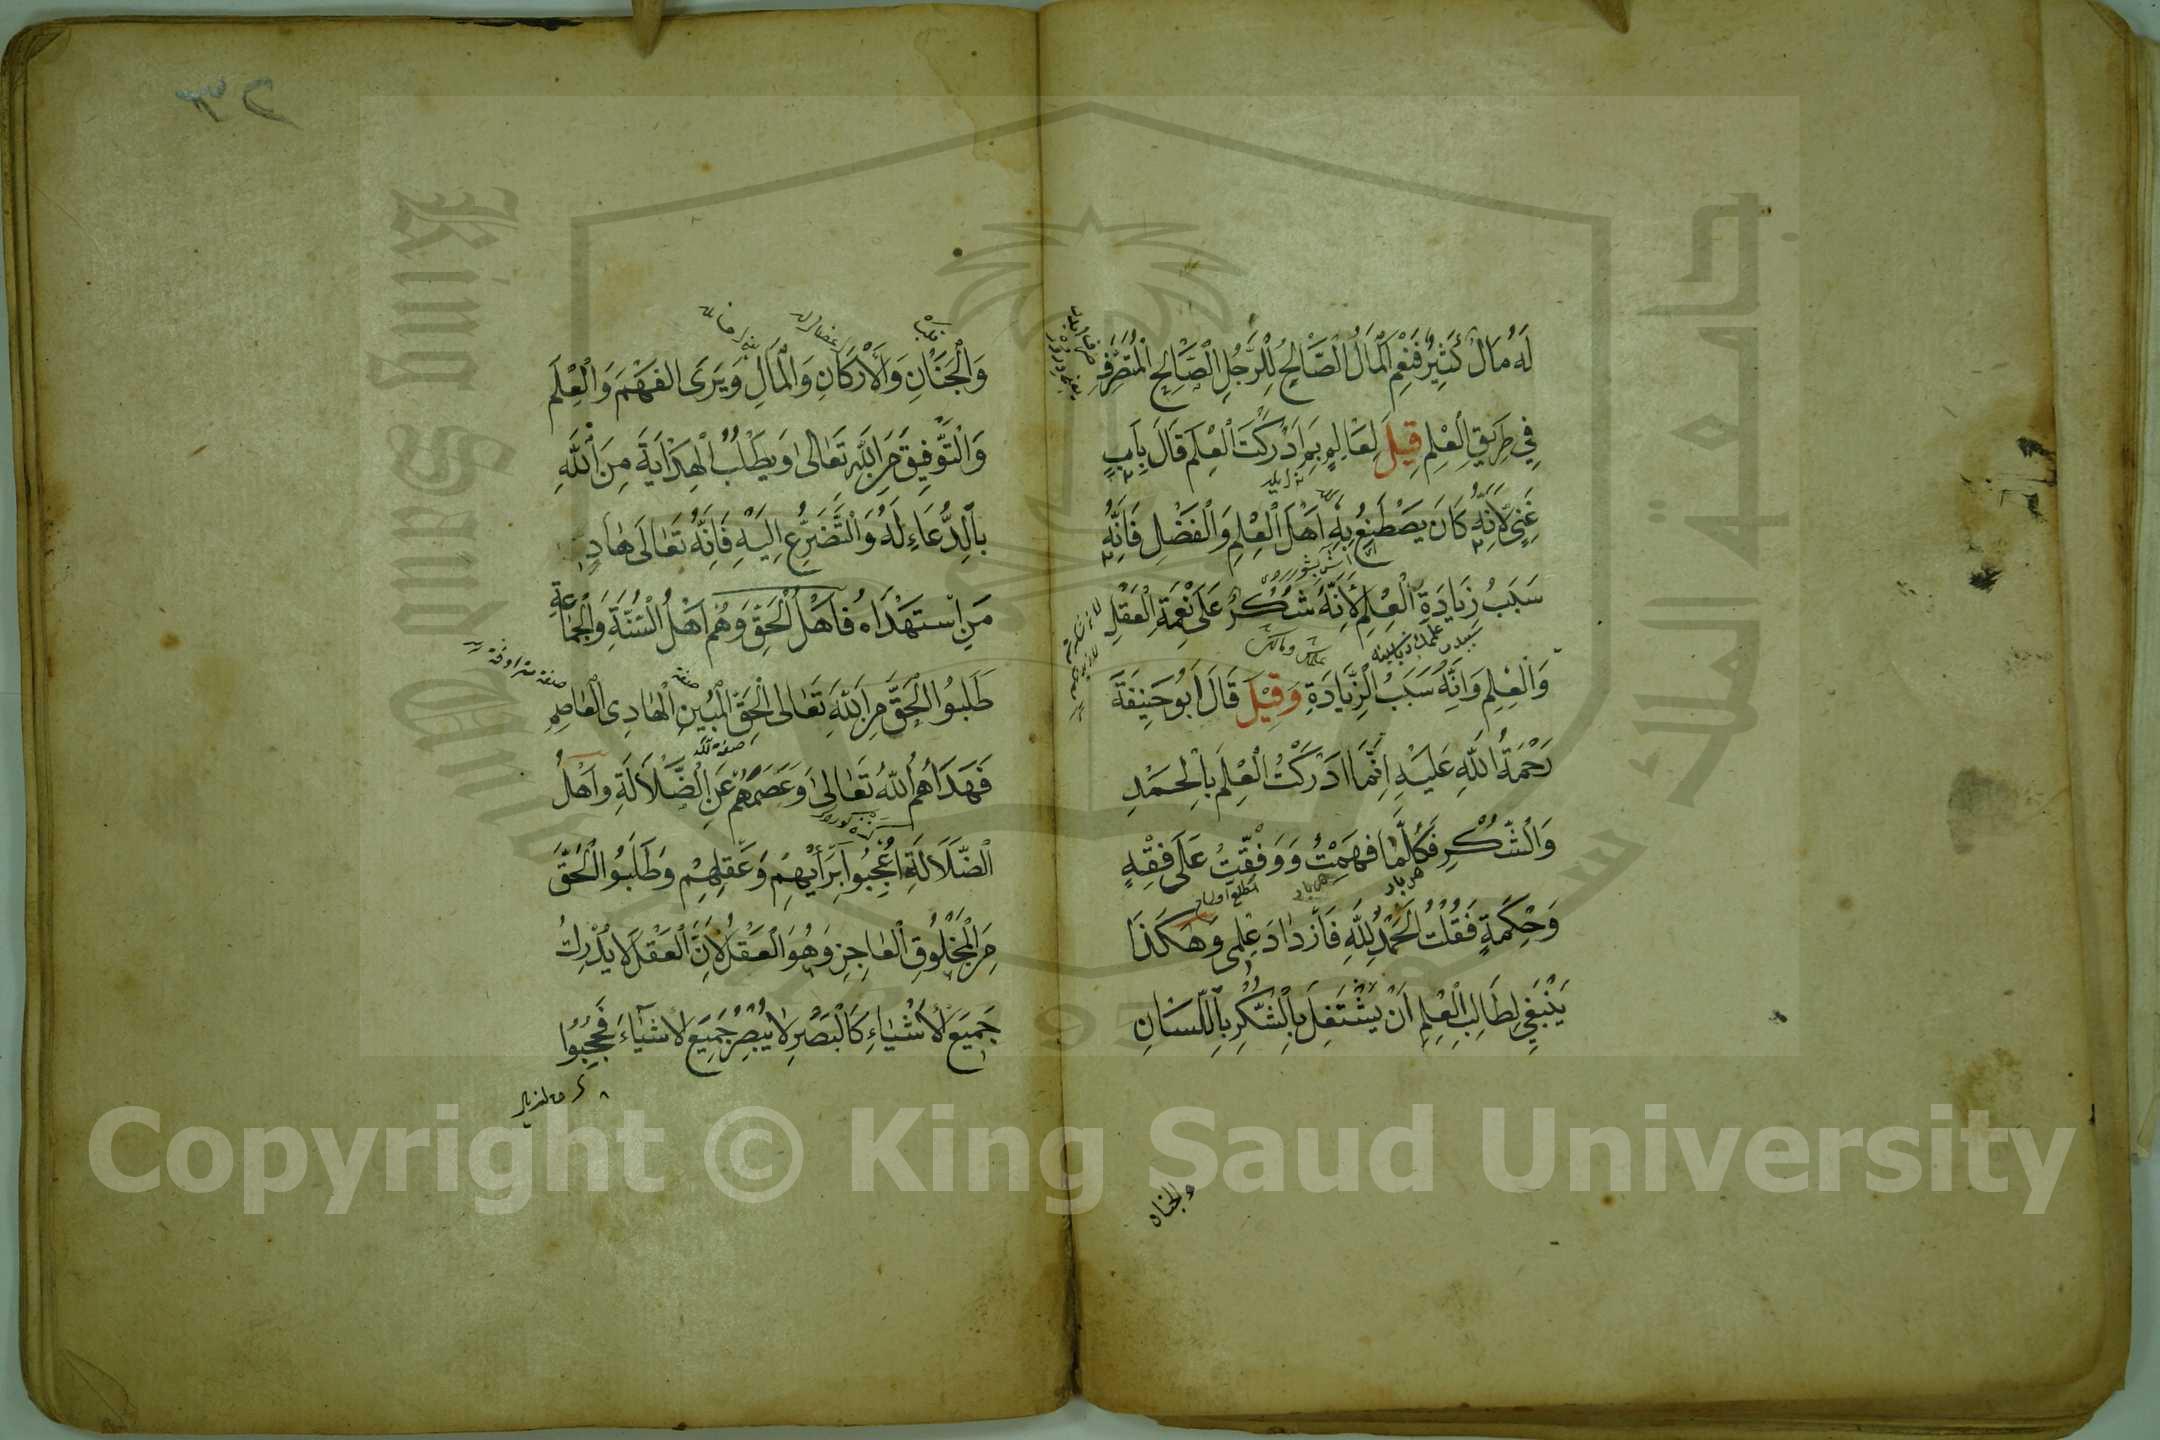 لَهُ مَالٌ كَثِيرٌ فَنِعْمَ الْمَالُ الصَّالِحُ لِلرَّجُلِ الصَّالِحِ الْمُتَصَرِّفِ
فِي طَرِيقِ الْعِلْمِ قِيلَ لِعَالِمٍ بِمَ اَدْرَكْتَ الْعِلْمَ قَالَ بِاَبٍ
غَنِيٍّ لِاَنَّهُ كَانَ يَصْطَنِعُ بِهِ اَهْلَ الْعِلْمِ وَالْفَضْلِ فَاِنَّهُ
سَبَبُ زِيَادَةِ الْعِلْمِ لِأَنَّهُ شُكْرٌ عَلَى نِعْمَةِ الْعَقْلِ
وَالْعِلْمِ وَاِنَّهُ سَبَبُ الزِّيَادَةِ وَقِيْلَ قَالَ اَبُو حَنِيفَةَ
رَحْمَةُ اللّٰهِ عَلَيْهِ اِنَّمَا اَدْرَكْتُ الْعِلْمَ بِالْحَمْدِ
وَالشُّكْرِ فَكُلَّمَا فَهِمْتُ وَوُفِّقْتُ عَلَى فِقْهٍ
وَحِكْمَةٍ فَقُلْتُ الْحَمْدُ لِلّٰهِ فَازْدَادَ عِلْمِي وَهَكَذَا
يَنْبَغِي لِطَالِبِ الْعِلْمِ اَنْ يَشْتَغِلَ بِالشُّكْرِ بِاللِّسَانِ
والجنان
٢٣
وَالْجَنَانِ وَالْاَرْكَانِ وَالْمَالِ وَيَرَى الفَهْمَ وَالْعِلْمَ
وَالتَّوْفِيقَ مِنَ اللّٰهِ تَعَالٰى وَيَطْلُبُ الْهِدَايَةَ مِنَ اللّٰهِ
بِالدُّعَاءِ لَهُ وَالتَّضَرُّعِ اِلَيْهِ فَاِنَّهُ تَعَالَى هَادٍ
مَنِ اسْتَهْدَاهُ فَاَهْلُ الْحَقِّ وَهُمْ اَهْلُ السُّنَّةِ وَالْجَمَاعَةِ
طَلَبُوا الْحَقَّ مِنَ اللّٰهِ تَعَالٰى الْحَقِّ الْمُبِينِ الْهَادِي الْعَاصِمِ
فَهَدَاهُمُ اللّٰهُ تَعَالٰى وَعَصَمَهُمْ عَنِ الضَّلَالَةِ وَاَهْلُ
الضَّلَالَةِ اُعْجِبُوا بِرَأْيِهِمْ وَعَقْلِهِمْ وَطَلَبُوا الْحَقَّ
مِنَ الْمَخْلُوقِ الْعَاجِزِ وَهُوَ الْعَقْلُ لِاَنَّ الْعَقْلَ لَا يُدْرِكُ
جَمِيعَ الْاَشْيَاءِ كَالْبَصَرِ لَا يُبْصِرُ جَمِيعَ الْاَشْيَاءِ فَحُجِبُوا
Copyright © King Saud University
جامعة الملك سعود
King Saud University